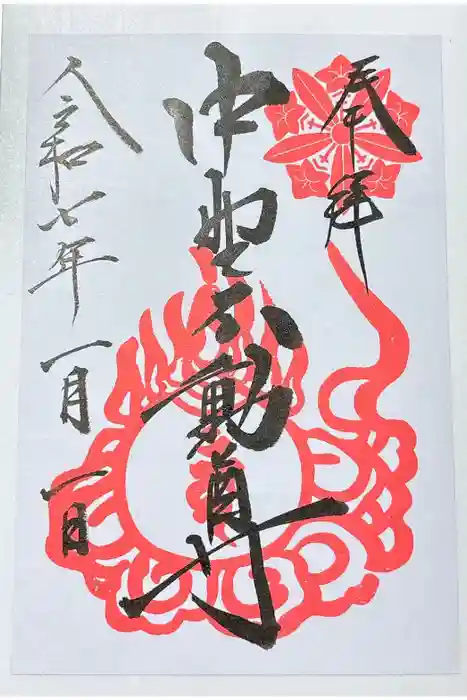 奉拝
中野不動尊
令和七年
一月
一日